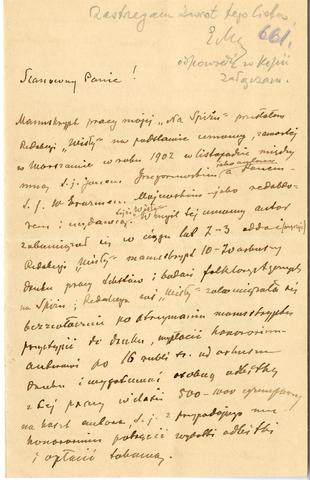 Zastrzegam zwrot tego listu,
EM 661.
odpowiedź w kopii
załączam.
Szanowny Panie!
Manuskrypt pracy mojej "Na Spiżu" przesłałem
Redakcji "Wisły" na podstawie umowy, zawartej
w Warszawie w roku 1902 w listopadzie między
mną, t. j. Janem Grzegorzewskim jako autorem a Panem
t. j. W. Erazmem Majewskim jako redakto-
rem i wydawcą "Wisły". W myśl tej umowy autor
zobowiązał się w ciągu lat 2-3 oddać
Redakcji "Wisły" manuskrypt 10-
druku pracy tekstów i badań folklorystycznych
na Spiżu; Redakcja zaś "Wisły" zobowiązała się
bezzwłocznie po otrzymaniu manuskryptu
przystąpić do druku, wypłacić honorarium
autorowi po 16 rubli sr. od arkusza
druku i wygotować osobną odbitkę
z tej pracy w ilości 500-1000 egzemplarzy
na koszt autora, t. j. z przypadającego mu
honorarium potrącić wydatki odbitki
i opłacić